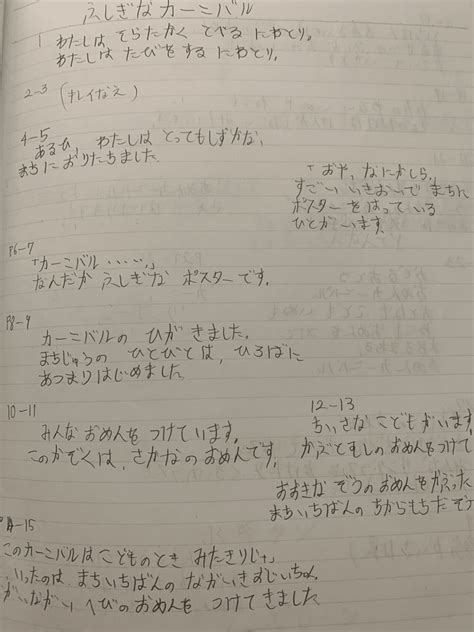 ふしぎなカーニバル
1 わたしは そらたかく とべる にわとり。
わたしは たびをする にわとり。
2-3 (キレイなえ)
4-5
あるひ、わたしは とってもしずかな、
まちに おりたちました。
「おや、なにかしら。
すごい いきおいで まちに
ポスターを はっている
ひとが います。
P6-7
「カーニバル・・・・・。」
なんだか ふしぎな ポスターです。
P8-9
カーニバルの ひが きました。
まちじゅうの ひとびとは、ひろばに
あつまりはじめました。
10-11
みんな おめんを つけています。
このかぞくは、さかなの おめんです。
12-13
ちいさな こどもが います。
かぶとむしの おめんをつけて
おおきな ぞうの おめんを かぶった
まちいちばんの ちからもちだぞう
14-15
このカーニバルは こどものとき みたきりじゃ
いったのは まちいちばんの ながいきおじいちゃん。
ながい へびの おめんを つけてきました